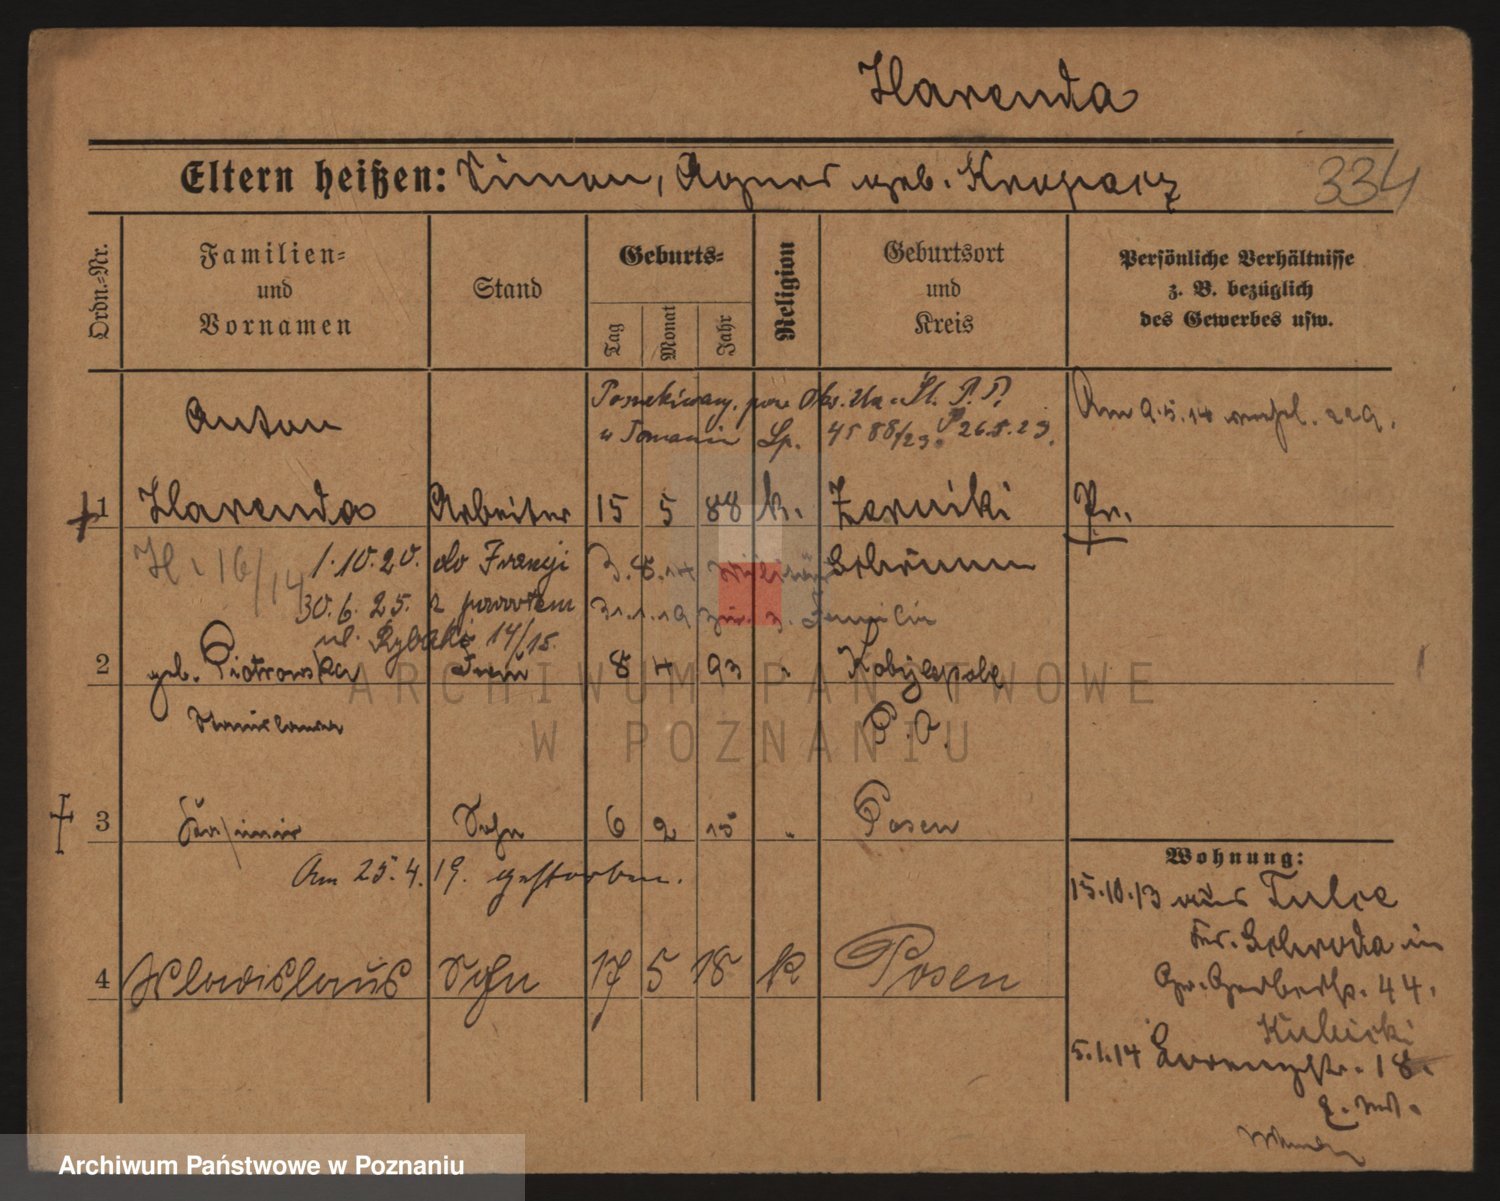 Harenda
Eltern heißen: Simon, Agnes geb. Kropacz
334
Ordn.-Nr.
Familien-
und
Vornamen
Stand
Geburts-
Tag
Monat
Jahr
Religion
Geburtsort
und
Kreis
Persönliche Verhältnisse
z. B. bezüglich
des Gewerbes usw.
Anton
Poszukiwany.
4588/23. 26.8.23.
Am 9.5.14
1 Harenda Arbeiter 15 5 88 k. Zerniki Pr.
H. 16/14 1.10.20. do Francji 3.8.14 Militär Schrimm
30.6.25. z powrotem 31.1.19 zur. z. Familie
ul. Rybaki 14/15.
2 geb. Piotrowska Frau 8 4 93 " Kobylepole
Stanislawa P. O.
3 Kasimir Sohn 6 2 15 " Posen
Am 25.4.19. gestorben.
4 Wladislaus Sohn 17 5 18 k Posen
Wohnung:
15.10.13 aus Tulce
Kr. Schroda in
Gr. Gerberstr. 44.
Kubicki
5.1.14 Lorenzstr. 18.
ARCHIWUM PAŃSTWOWE
W POZNANIU
Archiwum Państwowe w Poznaniu